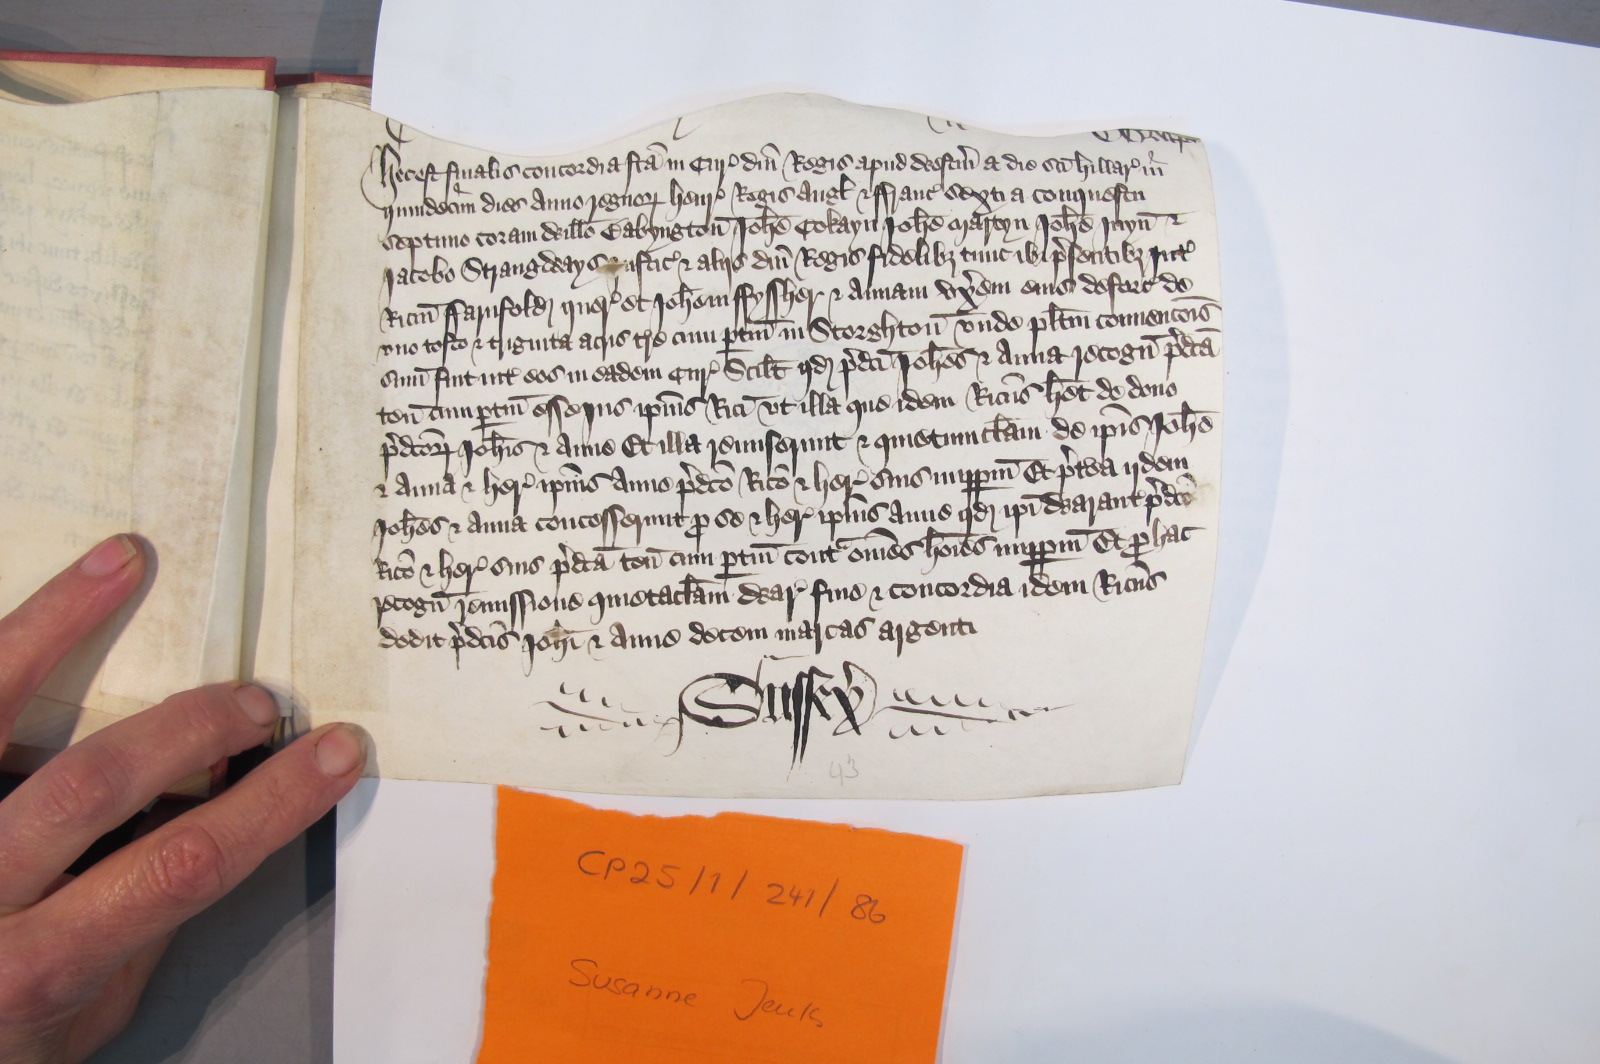 Hec est finalis concordia fc̄a in Cur̾ dn̄i Regis apud Westm̄ a die sc̄i Hillar̾ in
quindecim dies Anno regnoꝝ Henr̾ Regis Angl̄ & Franc̾ Sexti a conquestu
septimo coram Will̄o Babyngton̄ Joh̄e Cokayn Joh̄e Martyn Joh̄e Juyn̄ &
Jacobo Strangways Justic̾ & alijs dn̄i Regis fidelibȝ tunc ibi p̄sentibȝ Int̾
Ric̄m Farnfold quer̾ et Joh̄em Fyssher & Annam vx̄em eius deforc̾ de
vno tofto & triginta acris tr̄e cum ptin̄ in Storghton̄ vnde pl̄itm conuenc̄ois
sum̄ fuit int̾ eos in eadem Cur̾ Scil̄t qd̄ p̄dc̄i Joh̄es & Anna recogn̄ p̄dc̄a
ten̄ cum ptin̄ esse Jus ip̄ius Ric̄i vt illa que idem Ric̄us h̄et de dono
p̄dc̄oꝝ Joh̄is & Anne Et illa remiserunt & quietumclam̄ de ip̄is Joh̄e
& Anna & her̾ ip̄ius Anne p̄dc̄o Ric̄o & her̾ suis imppm̄ Et p̄tea ijdem
Joh̄es & Anna concesserunt ꝓ se & her̾ ip̄ius Anne qd̄ ip̄i Warant̾ p̄dc̄o
Ric̄o & her̾ suis p̄dc̄a ten̄ cum ptin̄ cont̾ om̄es ho̅ies imppm̄ Et ꝓ hac
recogn̄ remissione quietaclam̄ War̾ fine & concordia idem Ric̄us
dedit p̄dc̄is Joh̄i & Anne decem marcas argenti
Sussex̾
93
CP25/1/241/86
Susanne Jenks